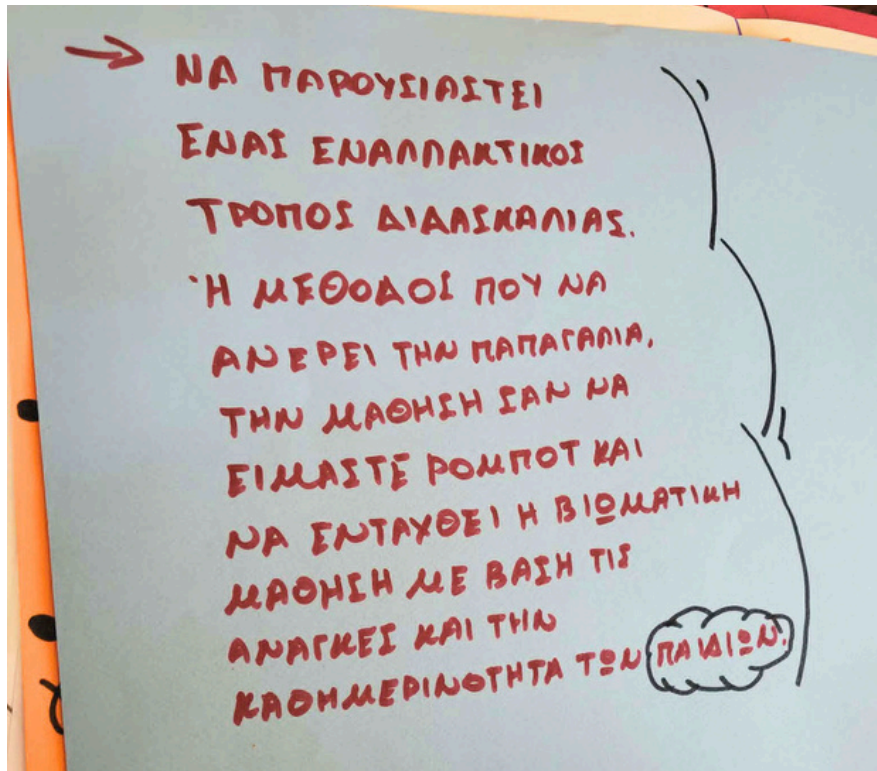 → ΝΑ ΠΑΡΟΥΣΙΑΣΤΕΙ
ΕΝΑΣ ΕΝΑΛΛΑΚΤΙΚΟΣ
ΤΡΟΠΟΣ ΔΙΔΑΣΚΑΛΙΑΣ.
Ή ΜΕΘΟΔΟΣ ΠΟΥ ΝΑ
ΑΝΕΡΕΙ ΤΗΝ ΠΑΠΑΓΑΛΙΑ,
ΤΗΝ ΜΑΘΗΣΗ ΣΑΝ ΝΑ
ΕΙΜΑΣΤΕ ΡΟΜΠΟΤ ΚΑΙ
ΝΑ ΕΝΤΑΧΘΕΙ Η ΒΙΩΜΑΤΙΚΗ
ΜΑΘΗΣΗ ΜΕ ΒΑΣΗ ΤΙΣ
ΑΝΑΓΚΕΣ ΚΑΙ ΤΗΝ
ΚΑΘΗΜΕΡΙΝΟΤΗΤΑ ΤΩΝ ΠΑΙΔΙΩΝ.